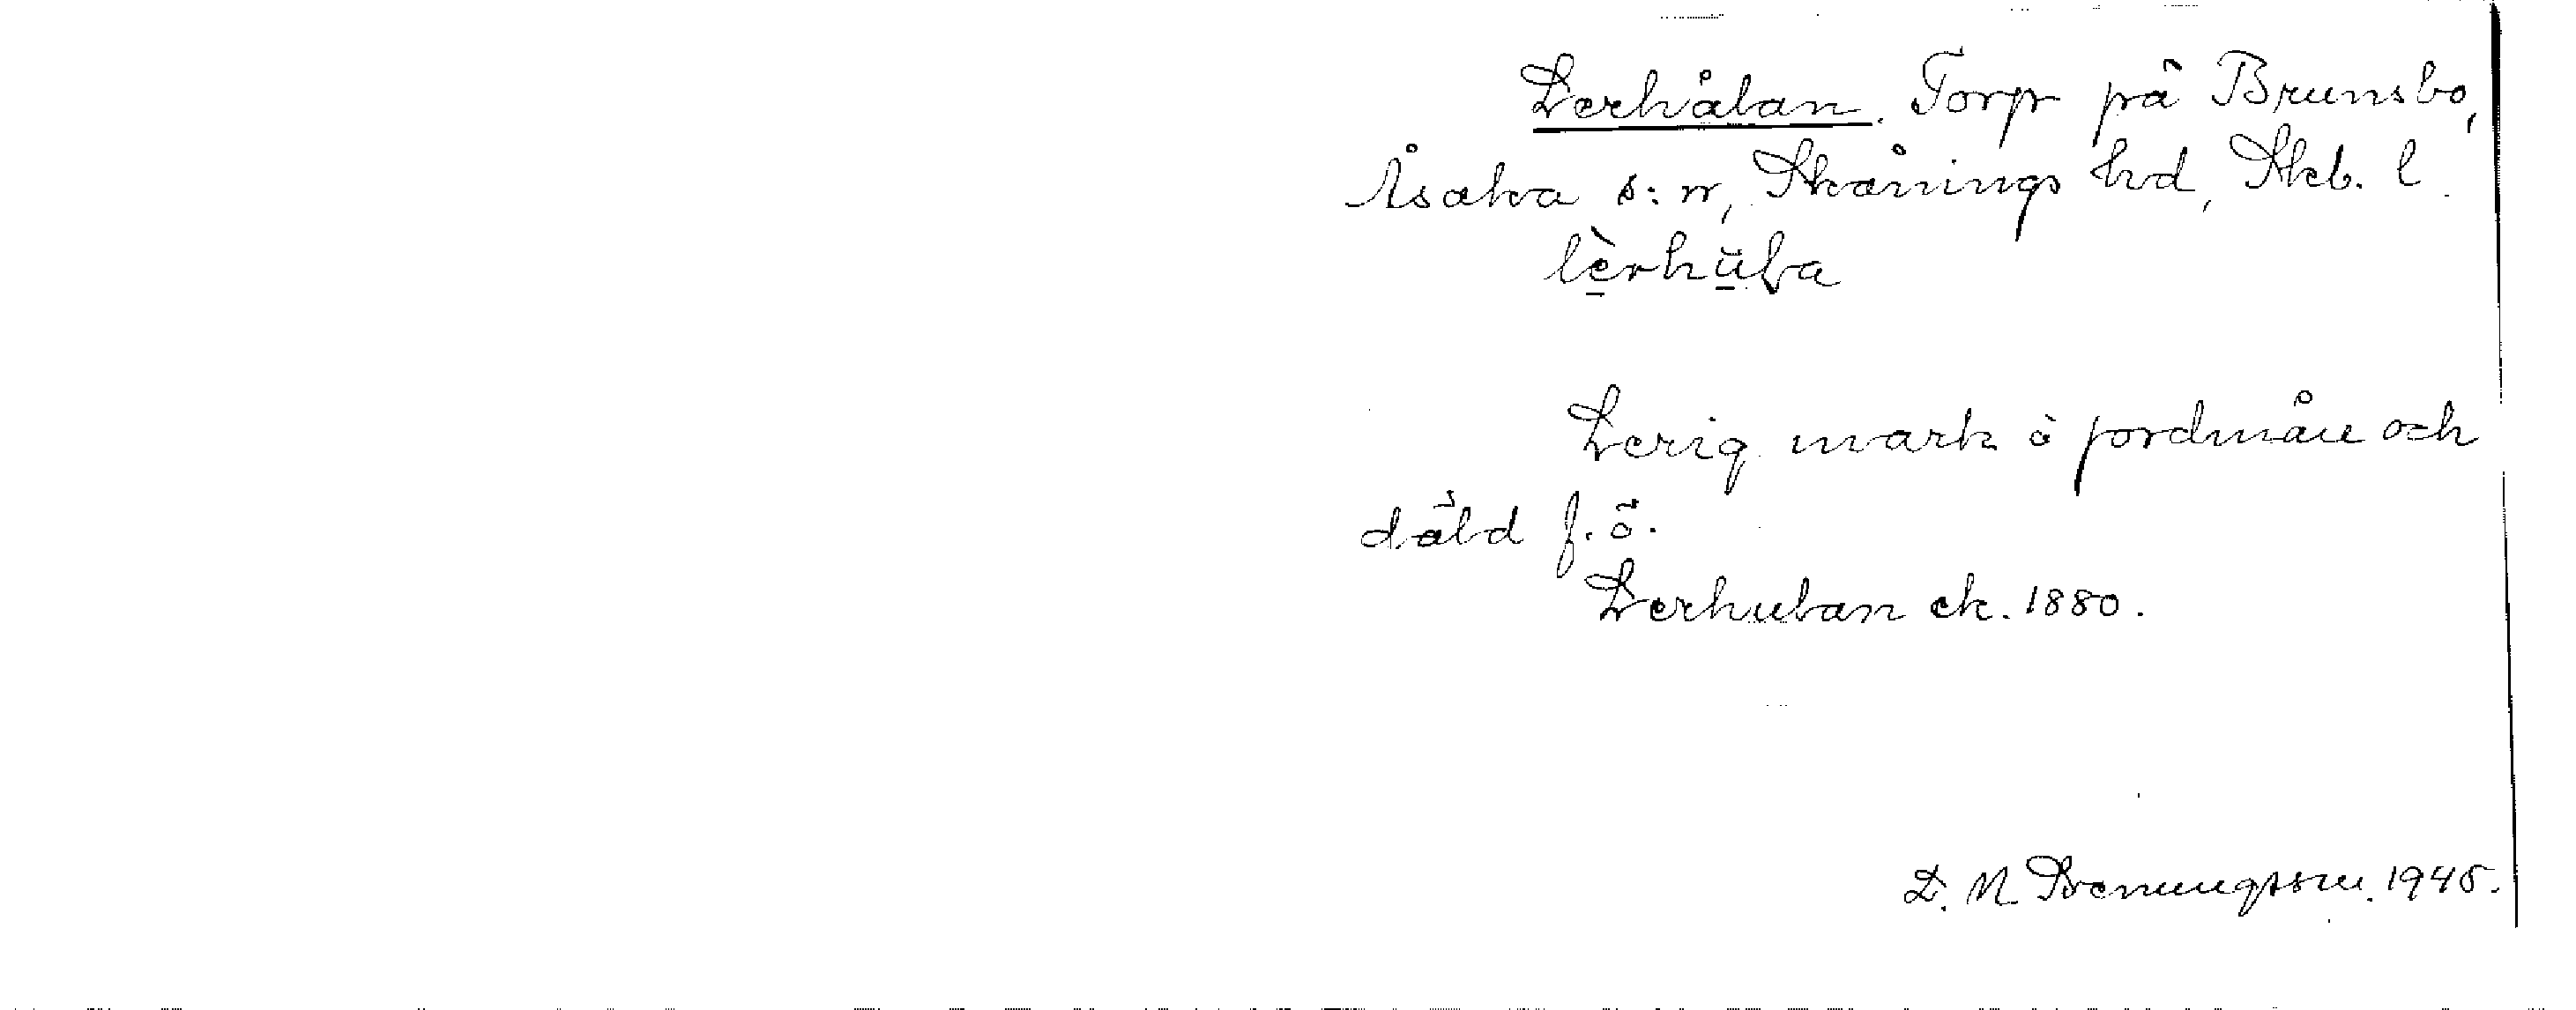 Lerhålan. Torp på Brunsbo,
Åsaka s:n, Skånings hd, Skb. l.
lèrhu̱la
Lerig mark å jordmån och
däld f. ö.
Lerhulan ek. 1880.
D. N. 1945.